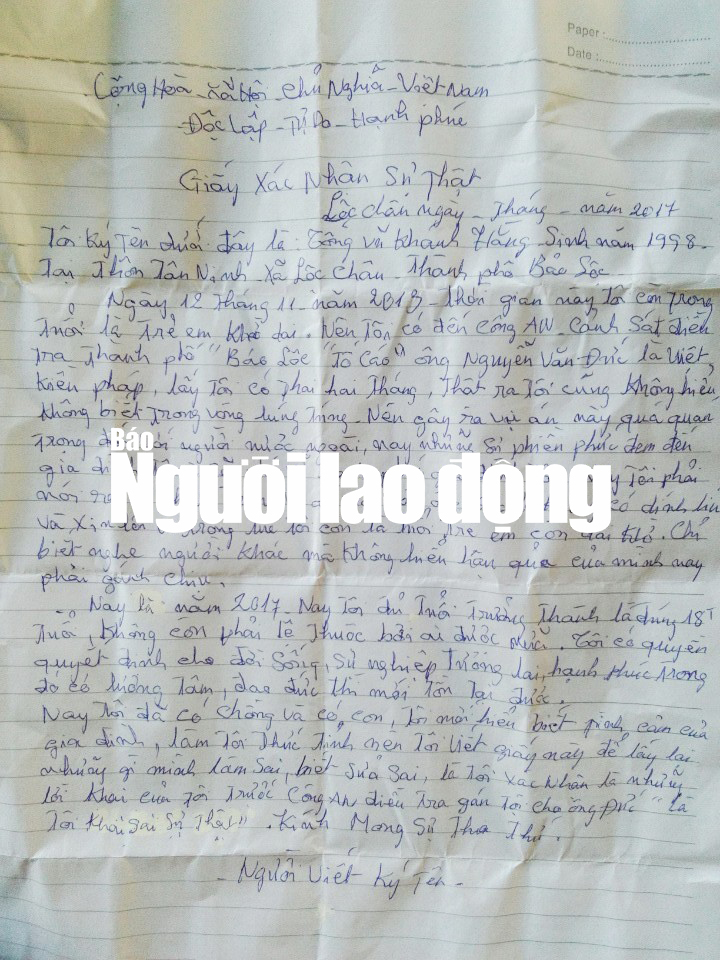 Paper :
Date :
Cộng Hoà - Xã Hội - Chủ Nghĩa - Việt Nam
Độc Lập - Tự Do - Hạnh phúc
Giấy Xác Nhận Sự Thật
Lộc Châu ngày - Tháng - năm 2017
Tôi Ký Tên dưới đây là: Tống Vũ Khánh Hằng - Sinh năm 1998 -
Tại Thôn Tân Ninh - Xã Lộc Châu - Thành phố Bảo Lộc
Ngày 12 Tháng 11 năm 2013 - Thời gian này Tôi còn Trong
Tuổi là Trẻ em Khờ dại. Nên Tôi có đến Công AN - Cảnh Sát điều
Tra Thành phố "Bảo Lộc" "Tố Cáo" ông Nguyễn Văn Đức là Việt,
Kiều pháp, lấy Tôi có Thai hai Tháng, Thật ra Tôi cũng Không hiểu,
không biết Trong vòng lúng Túng - Nên gây ra vụ án này, qua quan
Trọng đối với người nước ngoài, nay những Sự phiền phức đem đến
gia đì
Báo
Người lao động
nay Tôi phải
nói
có dính líu
và Xin
Tôi còn là Trẻ em còn dại Khờ. Chỉ
biết nghe người Khác mà Không hiểu hậu quả của mình nay
phải gánh chịu.
Nay là năm 2017 - Nay Tôi đủ Tuổi Trưởng Thành là đúng 18T
Tuổi, Không còn phải lệ Thuộc bởi ai được nữa. Tôi có quyền
quyết định cho đời Sống, Sự nghiệp Tương lai, hạnh phúc Trong
đó có lương Tâm, đạo đức Thì mới Tồn Tại được.
Nay Tôi đã có chồng và có con, Tôi mới hiểu biết Tình cảm của
gia đình, làm Tôi Thức Tỉnh nên Tôi Viết giấy này để lấy lại
những gì mình làm Sai, biết Sửa Sai, là Tôi Xác Nhận là những
lời Khai của Tôi Trước Công AN điều Tra gán Tội cho ông Đức "là
Tôi Khai Sai Sự Thật". Kính Mong Sự Tha Thứ.
- Người Viết Ký Tên -